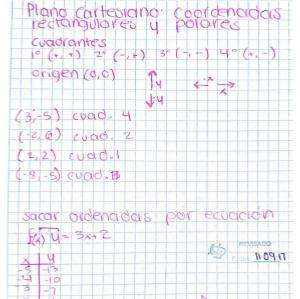 Plano cartesiano: coordenadas
rectangulares y polares
cuadrantes
1° (+, +) 2° (-, +) 3° (-, -) 4° (+, -)
origen (0,0) ↑y ←-x
↓-y →x
(3,-5) cuad. 4
cuad. 2
(2,2) cuad. 1
(-8,-5) cuad.
sacar ordenadas por ecuación
f(x) y = 3x+2
x y
-5 -13
-4 -10
-3 -7
REVISADO
11 09 17